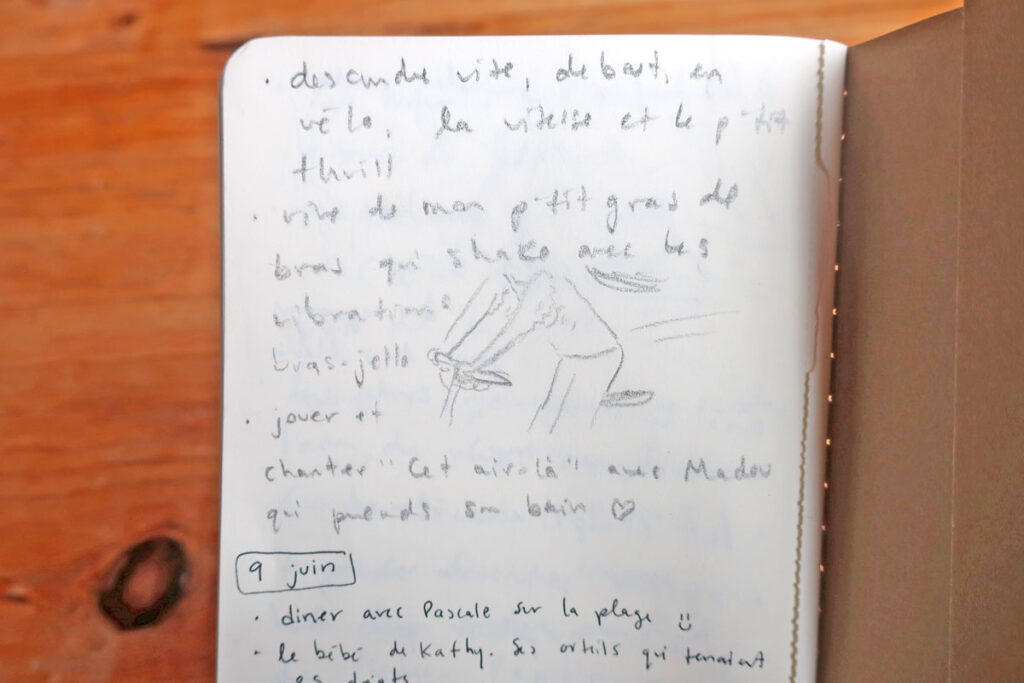 · descendre vite, debout, en
vélo, la vitesse et le p'tit
thrill
· rire de mon p'tit gras de
bras qui shake avec les
vibrations
bras-jello
· jouer et
chanter "Cet air-là" avec Madou
qui prends son bain ♡
9 juin
· diner avec Pascale sur la plage :)
· le bébé de Kathy. Ses orteils qui tenaient
doigts